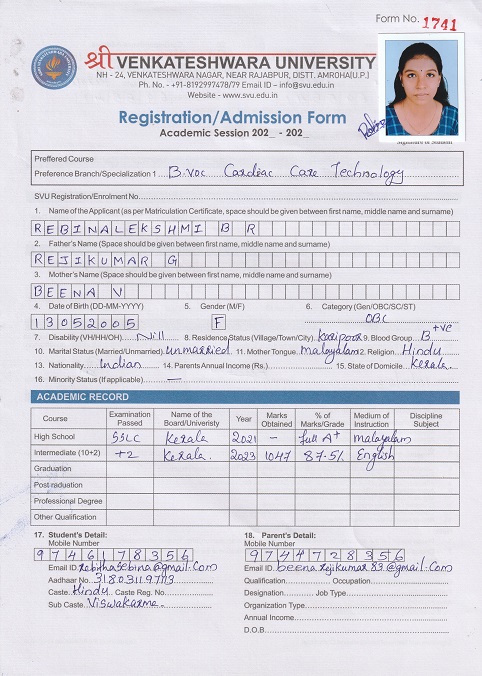 Form No. 1741
श्री VENKATESHWARA UNIVERSITY
NH - 24, VENKATESHWARA NAGAR, NEAR RAJABPUR, DISTT. AMROHA(U.P.)
Ph. No. - +91-8192997478/79 Email ID – info@svu.edu.in
Website - www.svu.edu.in
Registration/Admission Form
Academic Session 202_ - 202_
Preffered Course
Preference Branch/Specialization 1 B.voc Cardiac Care Technology
SVU Registration/Enrolment No.
1. Name of the Applicant (as per Matriculation Certificate, space should be given between first name, middle name and surname)
REBINALEKSHMI B R
2. Father's Name (Space should be given between first name, middle name and surname)
REJIKUMAR G
3. Mother's Name (Space should be given between first name, middle name and surname)
BEENA V
4. Date of Birth (DD-MM-YYYY) 5. Gender (M/F) 6. Category (Gen/OBC/SC/ST)
13052005 F OBC
7. Disability (VH/HH/OH) Nill 8. Residence Status (Village/Town/City) 9. Blood Group B +ve
10. Marital Status (Married/Unmarried) unmarried 11. Mother Tongue malayalam 2. Religion Hindu
13. Nationality Indian 14. Parents Annual Income (Rs.) 15. State of Domicile Kerala.
16. Minority Status (If applicable) —
ACADEMIC RECORD
Course Examination Passed Name of the Board/Univeristy Year Marks Obtained % of Marks/Grade Medium of Instruction Discipline Subject
High School SSLC Kerala 2021 - full A+ malayalam
Intermediate (10+2) +2 Kerala. 2023 1047 87.5% English
Graduation
Post raduation
Professional Degree
Other Qualification
17. Student's Detail: 18. Parent's Detail:
Mobile Number Mobile Number
9746178356 9744728356
Email ID Email ID beena.rejikumar83@gmail.com
Aadhaar No. Qualification Occupation
Caste Hindu Caste Reg. No. Designation Job Type
Sub Caste Viswakarma. Organization Type
Annual Income
D.O.B